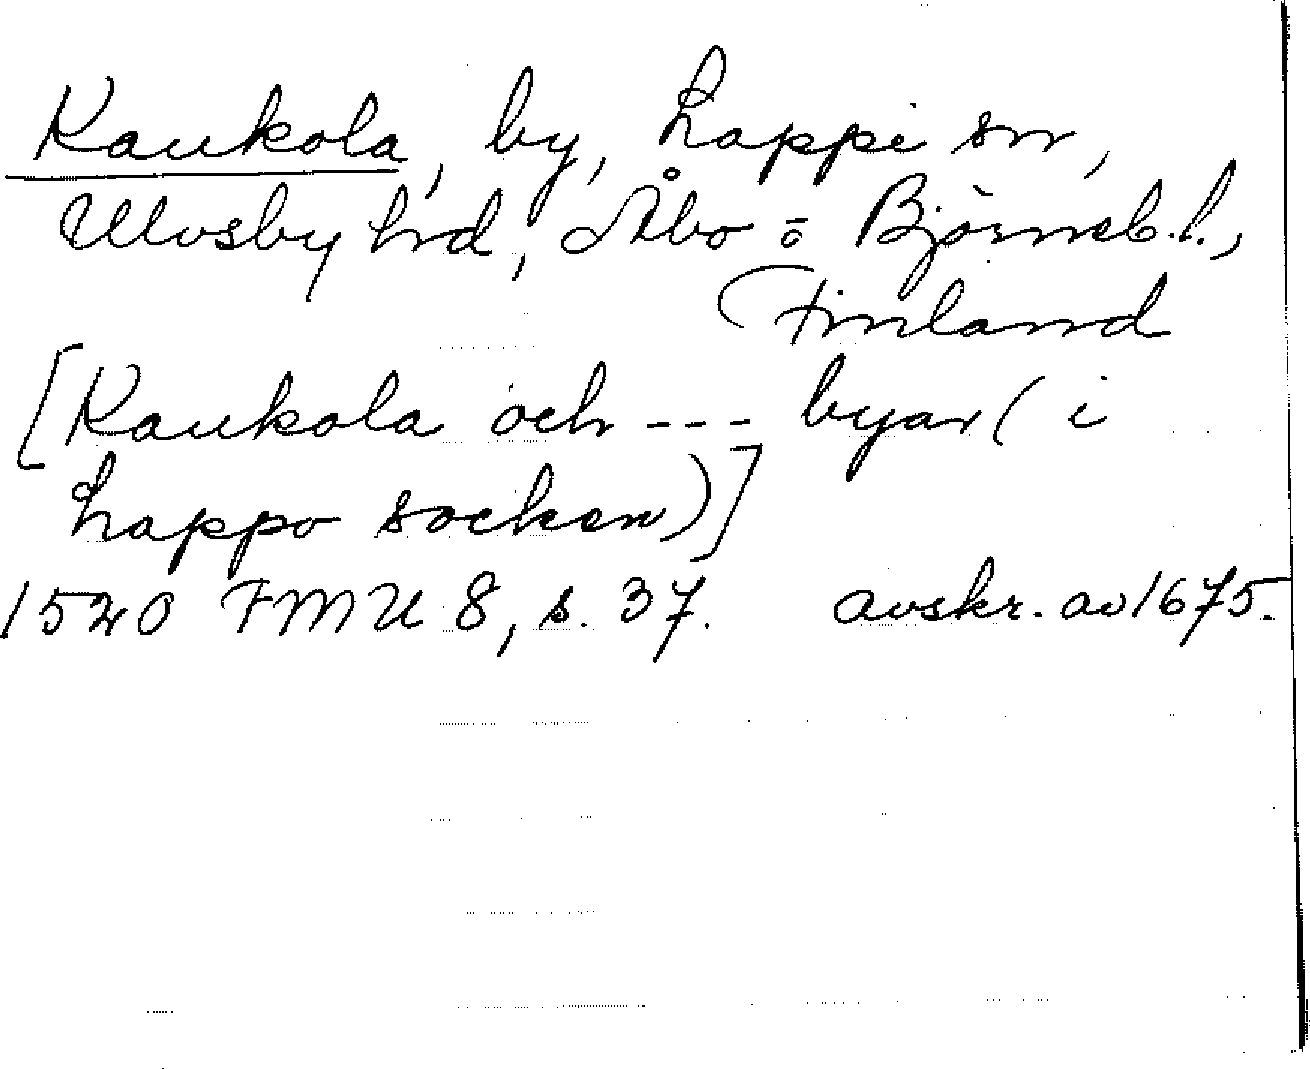 Kaukola, by, Lappi sn,
Ulvsby hrd, Åbo o Björneb. l.,
Finland
[Kaukola och --- byar (i
Lappo socken)]
1540 FMU 8, s. 37. avskr. av 1675.